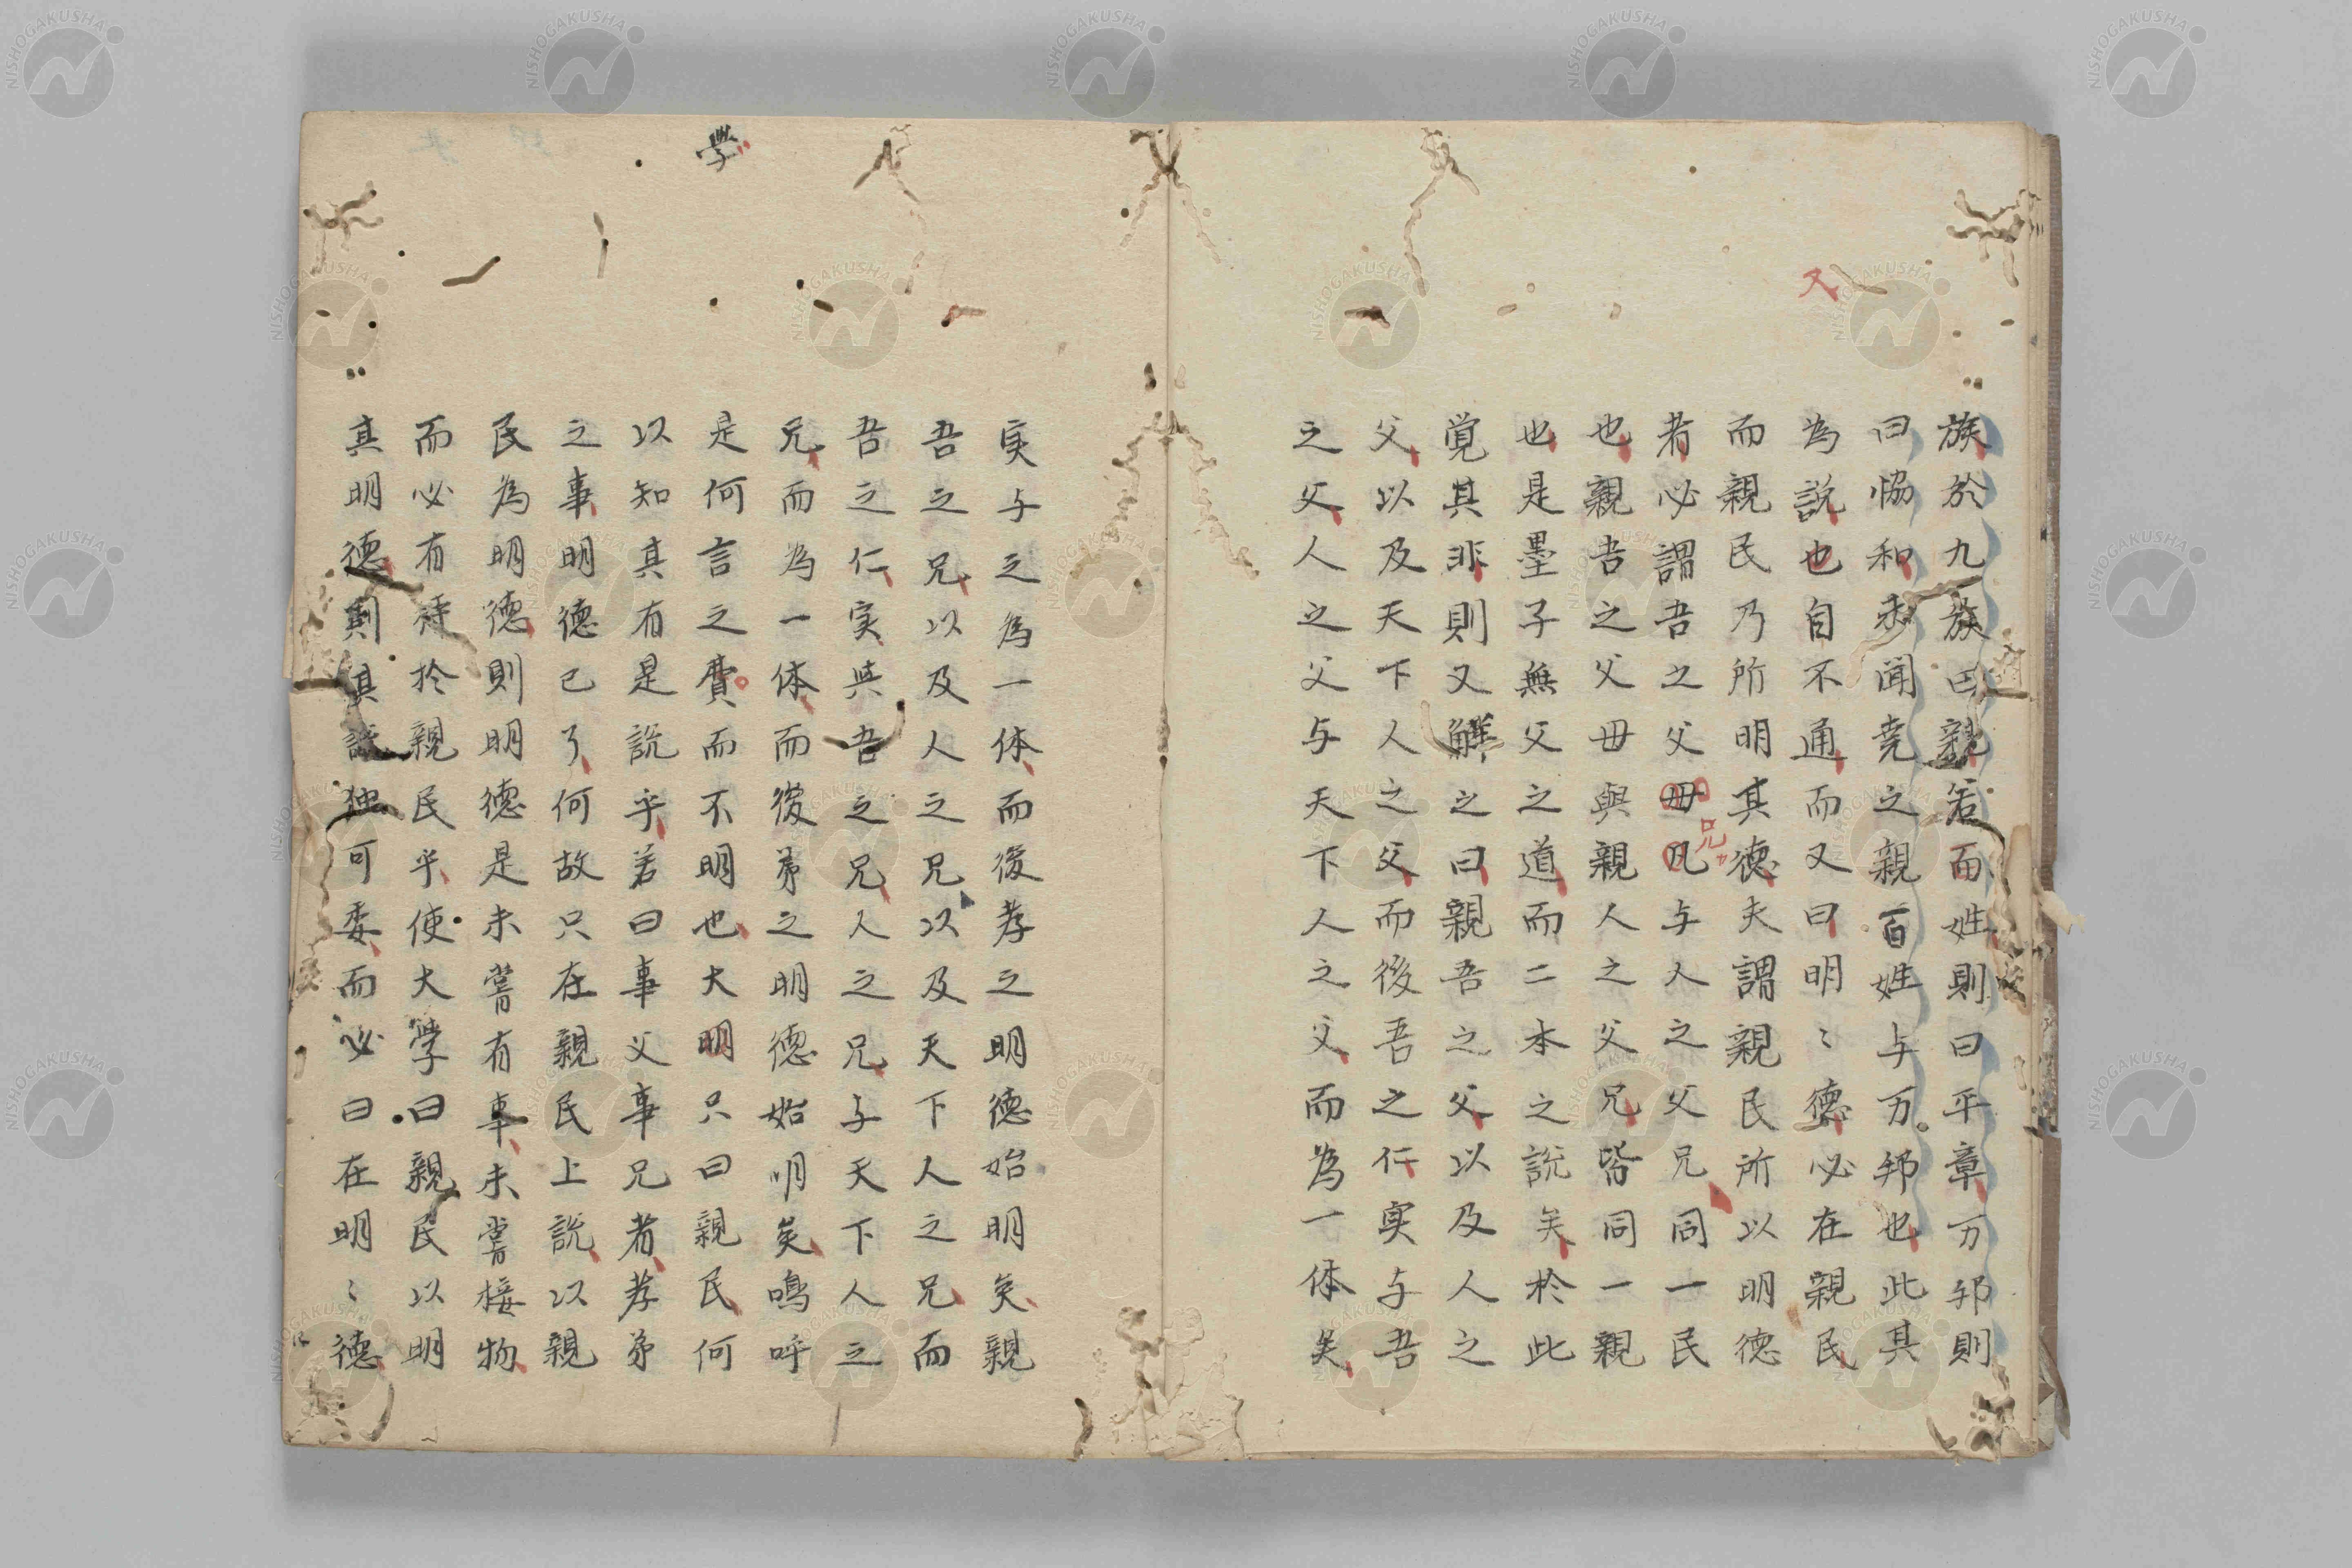 又
族於九族曰親若百姓則曰平章万邦則
曰恊和未聞尭之親百姓与万邦也此其
為説也自不通而又曰明〻德必在親民
而親民乃所明其德夫謂親民所以明德
者必謂吾之父毋凡与人之父兄同一民
兄カ
也親吾之父毋與親人之父兄皆同一親
也是墨子無父之道而二本之説矣於此
覚其非則又解之曰親吾之父以及人之
父以及天下人之父而後吾之仁実与吾
之父人之父与天下人之父而為一体矣
実与之為一体而後孝之明德始明矣親
吾之兄以及人之兄以及天下人之兄而
吾之仁実與吾之兄人之兄与天下人之
兄而為一体而後弟之明德始明矣鳴呼
学
是何言之費而不明也大明只曰親民何
以知其有是説乎若曰事父事兄者孝弟
之事明德已了何故只在親民上説以親
民為明德則明德是未嘗有事未嘗接物
而必有待於親民乎使大学曰親民以明
其明德則其説独可委而必曰在明〻德
NISHOGAKUSHA